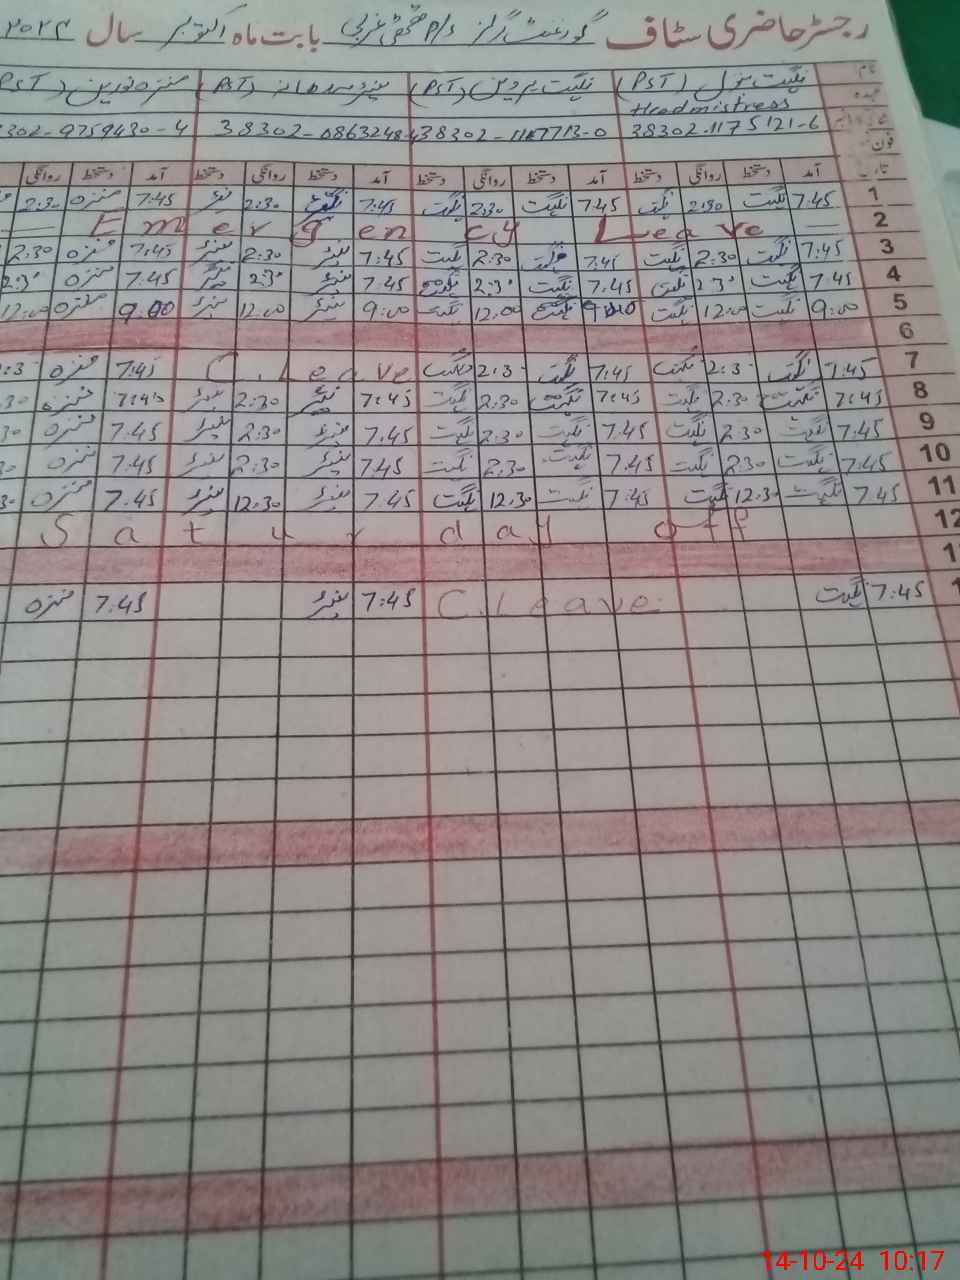 رجسٹر حاضری سٹاف گورنمنٹ گرلز P/S غربی بابت ماہ اکتوبر سال ۲۰۲۴
نام نگہت بتول (PST) نگہت پروین (PST) (PST) (PST)
عہدہ Headmistress
38302-1175121-6 38302-1167713-0 38302-0863248-4 38302-9759430-4
فون
تاریخ آمد دستخط روانگی دستخط آمد دستخط روانگی دستخط آمد دستخط روانگی دستخط آمد دستخط روانگی
1 7:45 نگہت 2:30 نگہت 7:45 نگہت 2:30 نگہت 7:45 2:30 7:45 منزہ 2:30
2 Emergency Leave
3 7:45 نگہت 2:30 نگہت 7:45 نگہت 2:30 نگہت 7:45 2:30 7:45 منزہ 2:30
4 7:45 نگہت 2:30 نگہت 7:45 نگہت 2:30 نگہت 7:45 2:30 7:45 منزہ 2:30
5 9:00 نگہت 12:00 نگہت 9:00 نگہت 12:00 نگہت 9:00 12:00 9:00 منزہ 12:00
6
7 7:45 نگہت 2:3 نگہت 7:45 نگہت 2:3 نگہت C.Leave 7:45 منزہ 2:3
8 7:45 نگہت 2:30 نگہت 7:45 نگہت 2:30 نگہت 7:45 2:30 7:45 منزہ 30
9 7:45 نگہت 2:30 نگہت 7:45 نگہت 2:30 نگہت 7:45 2:30 7:45 منزہ 30
10 7:45 نگہت 2:30 نگہت 7:45 نگہت 2:30 نگہت 7:45 2:30 7:45 منزہ
11 7:45 نگہت 12:30 نگہت 7:45 نگہت 12:30 نگہت 7:45 12:30 7:45 منزہ 30
12 Saturday off
1
1 7:45 نگہت C.Leave 7:45 7:45 منزہ
14-10-24 10:17